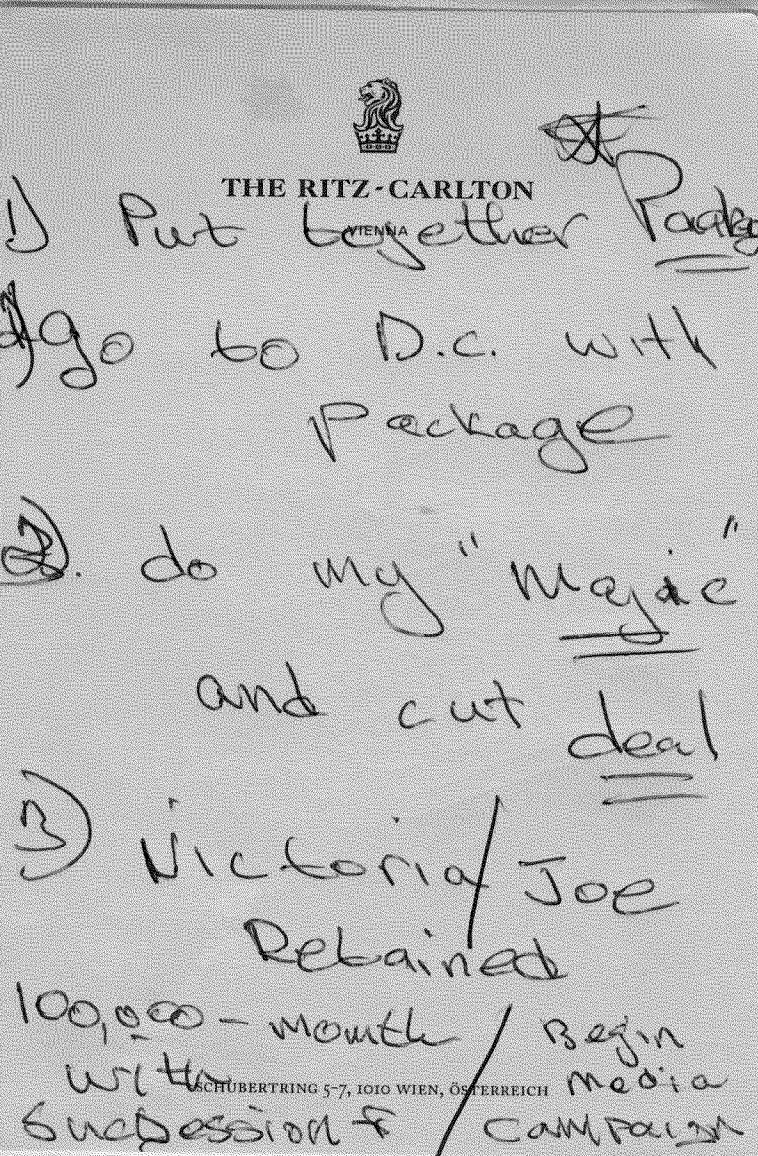 THE RITZ-CARLTON
VIENNA
1) Put together
go to D.C. with
package
2). do my "Majic"
and cut deal
3) Victoria/Joe
Retained
100,000 - month / Begin
with media
SCHUBERTRING 5-7, 1010 WIEN, ÖSTERREICH
campaign